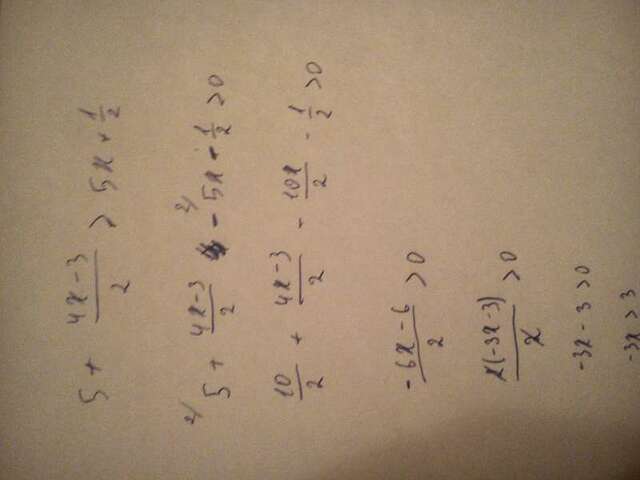 5 + \frac{4x-3}{2} > 5x + \frac{1}{2}
5 + \frac{4x-3}{2} - 5x - \frac{1}{2} > 0
\frac{10}{2} + \frac{4x-3}{2} - \frac{10x}{2} - \frac{1}{2} > 0
\frac{-6x-6}{2} > 0
\frac{2(-3x-3)}{2} > 0
-3x - 3 > 0
-3x > 3